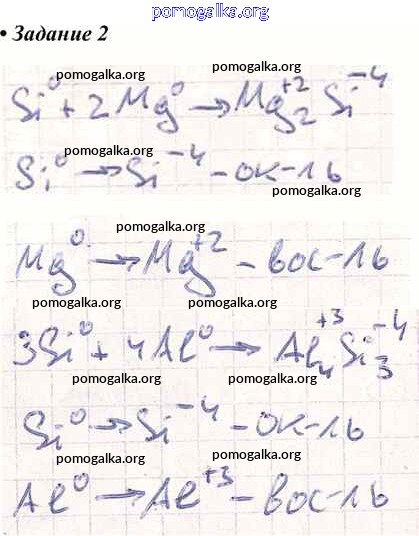 pomogalka.org
• Задание 2
pomogalka.org pomogalka.org
Si⁰ + 2Mg⁰ → Mg₂⁺² Si⁻⁴
pomogalka.org
Si⁰ → Si⁻⁴ - ок-ль
pomogalka.org
pomogalka.org
Mg⁰ → Mg⁺² - вос-ль
pomogalka.org pomogalka.org
3Si⁰ + 4Al⁰ → Al₄⁺³ Si₃⁻⁴
pomogalka.org pomogalka.org
Si⁰ → Si⁻⁴ - ок-ль
pomogalka.org
Al⁰ → Al⁺³ - вос-ль
pomogalka.org